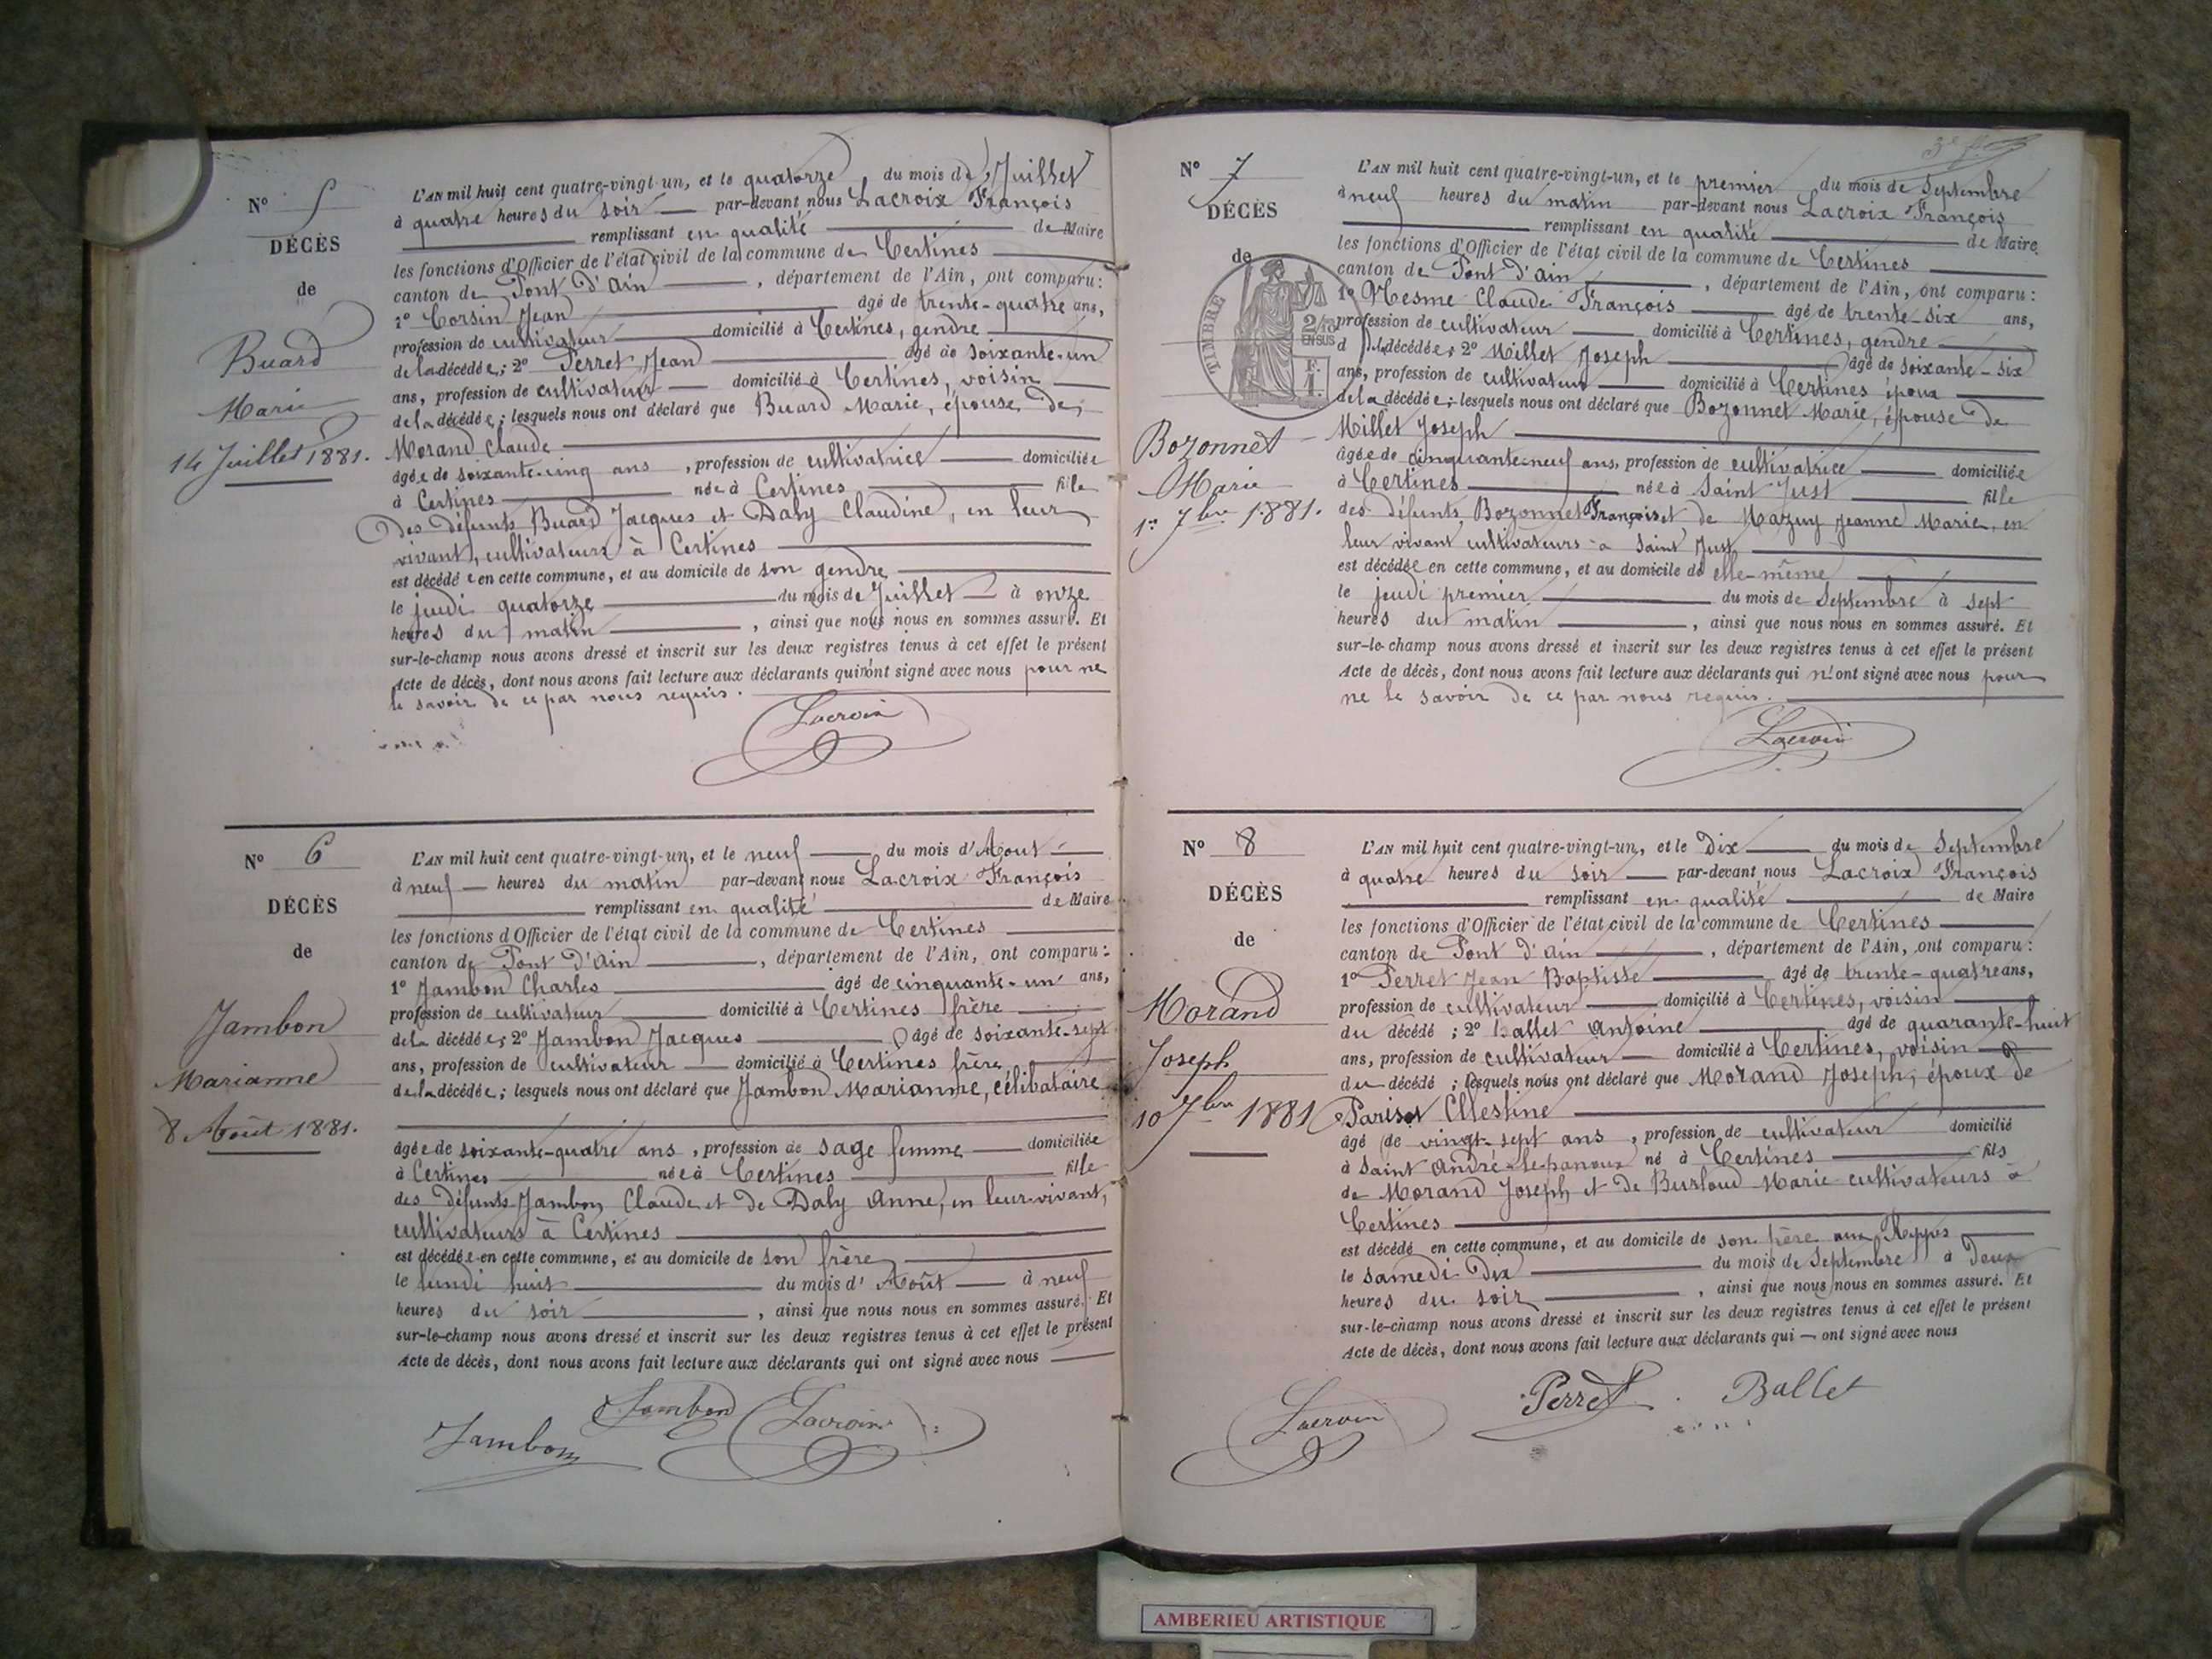 N° 5
DÉCÈS
de
Buard
Marie
14 Juillet 1881.
L'AN mil huit cent quatre-vingt-un, et le quatorze du mois de Juillet
à quatre heures du soir par-devant nous Lacroix François
remplissant en qualité de Maire
les fonctions d'Officier de l'état civil de la commune de Certines
canton de Pont d'ain, département de l'Ain, ont comparu :
1° Corsin Jean âgé de trente-quatre ans,
profession de cultivateur domicilié à Certines, gendre
de la décédée ; 2° Perret Jean âgé de soixante-un
ans, profession de cultivateur domicilié à Certines, voisin
de la décédée ; lesquels nous ont déclaré que Buard Marie, épouse de
Morand Claude
âgée de soixante-cinq ans, profession de cultivatrice domiciliée
à Certines née à Certines fille
des défunts Buard Jacques et Daly Claudine, en leur
vivant, cultivateurs à Certines
est décédée en cette commune, et au domicile de son gendre
le jeudi quatorze du mois de Juillet à onze
heures du matin, ainsi que nous nous en sommes assuré. Et
sur-le-champ nous avons dressé et inscrit sur les deux registres tenus à cet effet le présent
Acte de décès, dont nous avons fait lecture aux déclarants qui n'ont signé avec nous pour ne
le savoir de ce par nous requis.
Lacroix
N° 6
DÉCÈS
de
Jambon
Marianne
8 Août 1881.
L'AN mil huit cent quatre-vingt-un, et le neuf du mois d'Aout
à neuf heures du matin par-devant nous Lacroix François
remplissant en qualité de Maire
les fonctions d'Officier de l'état civil de la commune de Certines
canton de Pont d'ain, département de l'Ain, ont comparu :
1° Jambon Charles âgé de cinquante-un ans,
profession de cultivateur domicilié à Certines frère
de la décédée ; 2° Jambon Jacques âgé de soixante-sept
ans, profession de cultivateur domicilié à Certines frère
de la décédée ; lesquels nous ont déclaré que Jambon Marianne, célibataire
âgée de soixante-quatre ans, profession de sage femme domiciliée
à Certines née à Certines fille
des défunts Jambon Claude et de Daly Anne, en leur vivant,
cultivateurs à Certines
est décédée en cette commune, et au domicile de son frère
le lundi huit du mois d'Août à neuf
heures du soir, ainsi que nous nous en sommes assuré. Et
sur-le-champ nous avons dressé et inscrit sur les deux registres tenus à cet effet le présent
Acte de décès, dont nous avons fait lecture aux déclarants qui ont signé avec nous
Jambon Jambon Lacroix
3e
N° 7
DÉCÈS
de
TIMBRE
2/10 EN SUS
F. 1.
Bozonnet
Marie
1er 7bre 1881.
L'AN mil huit cent quatre-vingt-un, et le premier du mois de Septembre
à neuf heures du matin par-devant nous Lacroix François
remplissant en qualité de Maire
les fonctions d'Officier de l'état civil de la commune de Certines
canton de Pont d'ain, département de l'Ain, ont comparu :
1° Mesme Claude François âgé de trente-six ans,
profession de cultivateur domicilié à Certines, gendre
d la décédée ; 2° Millet Joseph âgé de soixante-six
ans, profession de cultivateur domicilié à Certines époux
de la décédée ; lesquels nous ont déclaré que Bozonnet Marie, épouse de
Millet Joseph
âgée de cinquante-neuf ans, profession de cultivatrice domiciliée
à Certines née à Saint Just fille
des défunts Bozonnet François et de Mazuy Jeanne Marie, en
leur vivant cultivateurs à Saint Just
est décédée en cette commune, et au domicile de elle-même
le jeudi premier du mois de Septembre à sept
heures du matin, ainsi que nous nous en sommes assuré. Et
sur-le-champ nous avons dressé et inscrit sur les deux registres tenus à cet effet le présent
Acte de décès, dont nous avons fait lecture aux déclarants qui n'ont signé avec nous pour
ne le savoir de ce par nous requis.
Lacroix
N° 8
DÉCÈS
de
Morand
Joseph
10 7bre 1881
L'AN mil huit cent quatre-vingt-un, et le dix du mois de Septembre
à quatre heures du soir par-devant nous Lacroix François
remplissant en qualité de Maire
les fonctions d'Officier de l'état civil de la commune de Certines
canton de Pont d'ain, département de l'Ain, ont comparu :
1° Perret Jean Baptiste âgé de trente-quatre ans,
profession de cultivateur domicilié à Certines, voisin
du décédé ; 2° Ballet Antoine âgé de quarante-huit
ans, profession de cultivateur domicilié à Certines, voisin
du décédé ; lesquels nous ont déclaré que Morand Joseph, époux de
Parisot Célestine
âgé de vingt-sept ans, profession de cultivateur domicilié
à Saint André-le-panoux né à Certines fils
de Morand Joseph et de Burloud Marie cultivateurs à
Certines
est décédé en cette commune, et au domicile de son père aux Rippes
le samedi dix du mois de Septembre à deux
heures du soir, ainsi que nous nous en sommes assuré. Et
sur-le-champ nous avons dressé et inscrit sur les deux registres tenus à cet effet le présent
Acte de décès, dont nous avons fait lecture aux déclarants qui — ont signé avec nous
Lacroix Perret Ballet
AMBERIEU ARTISTIQUE